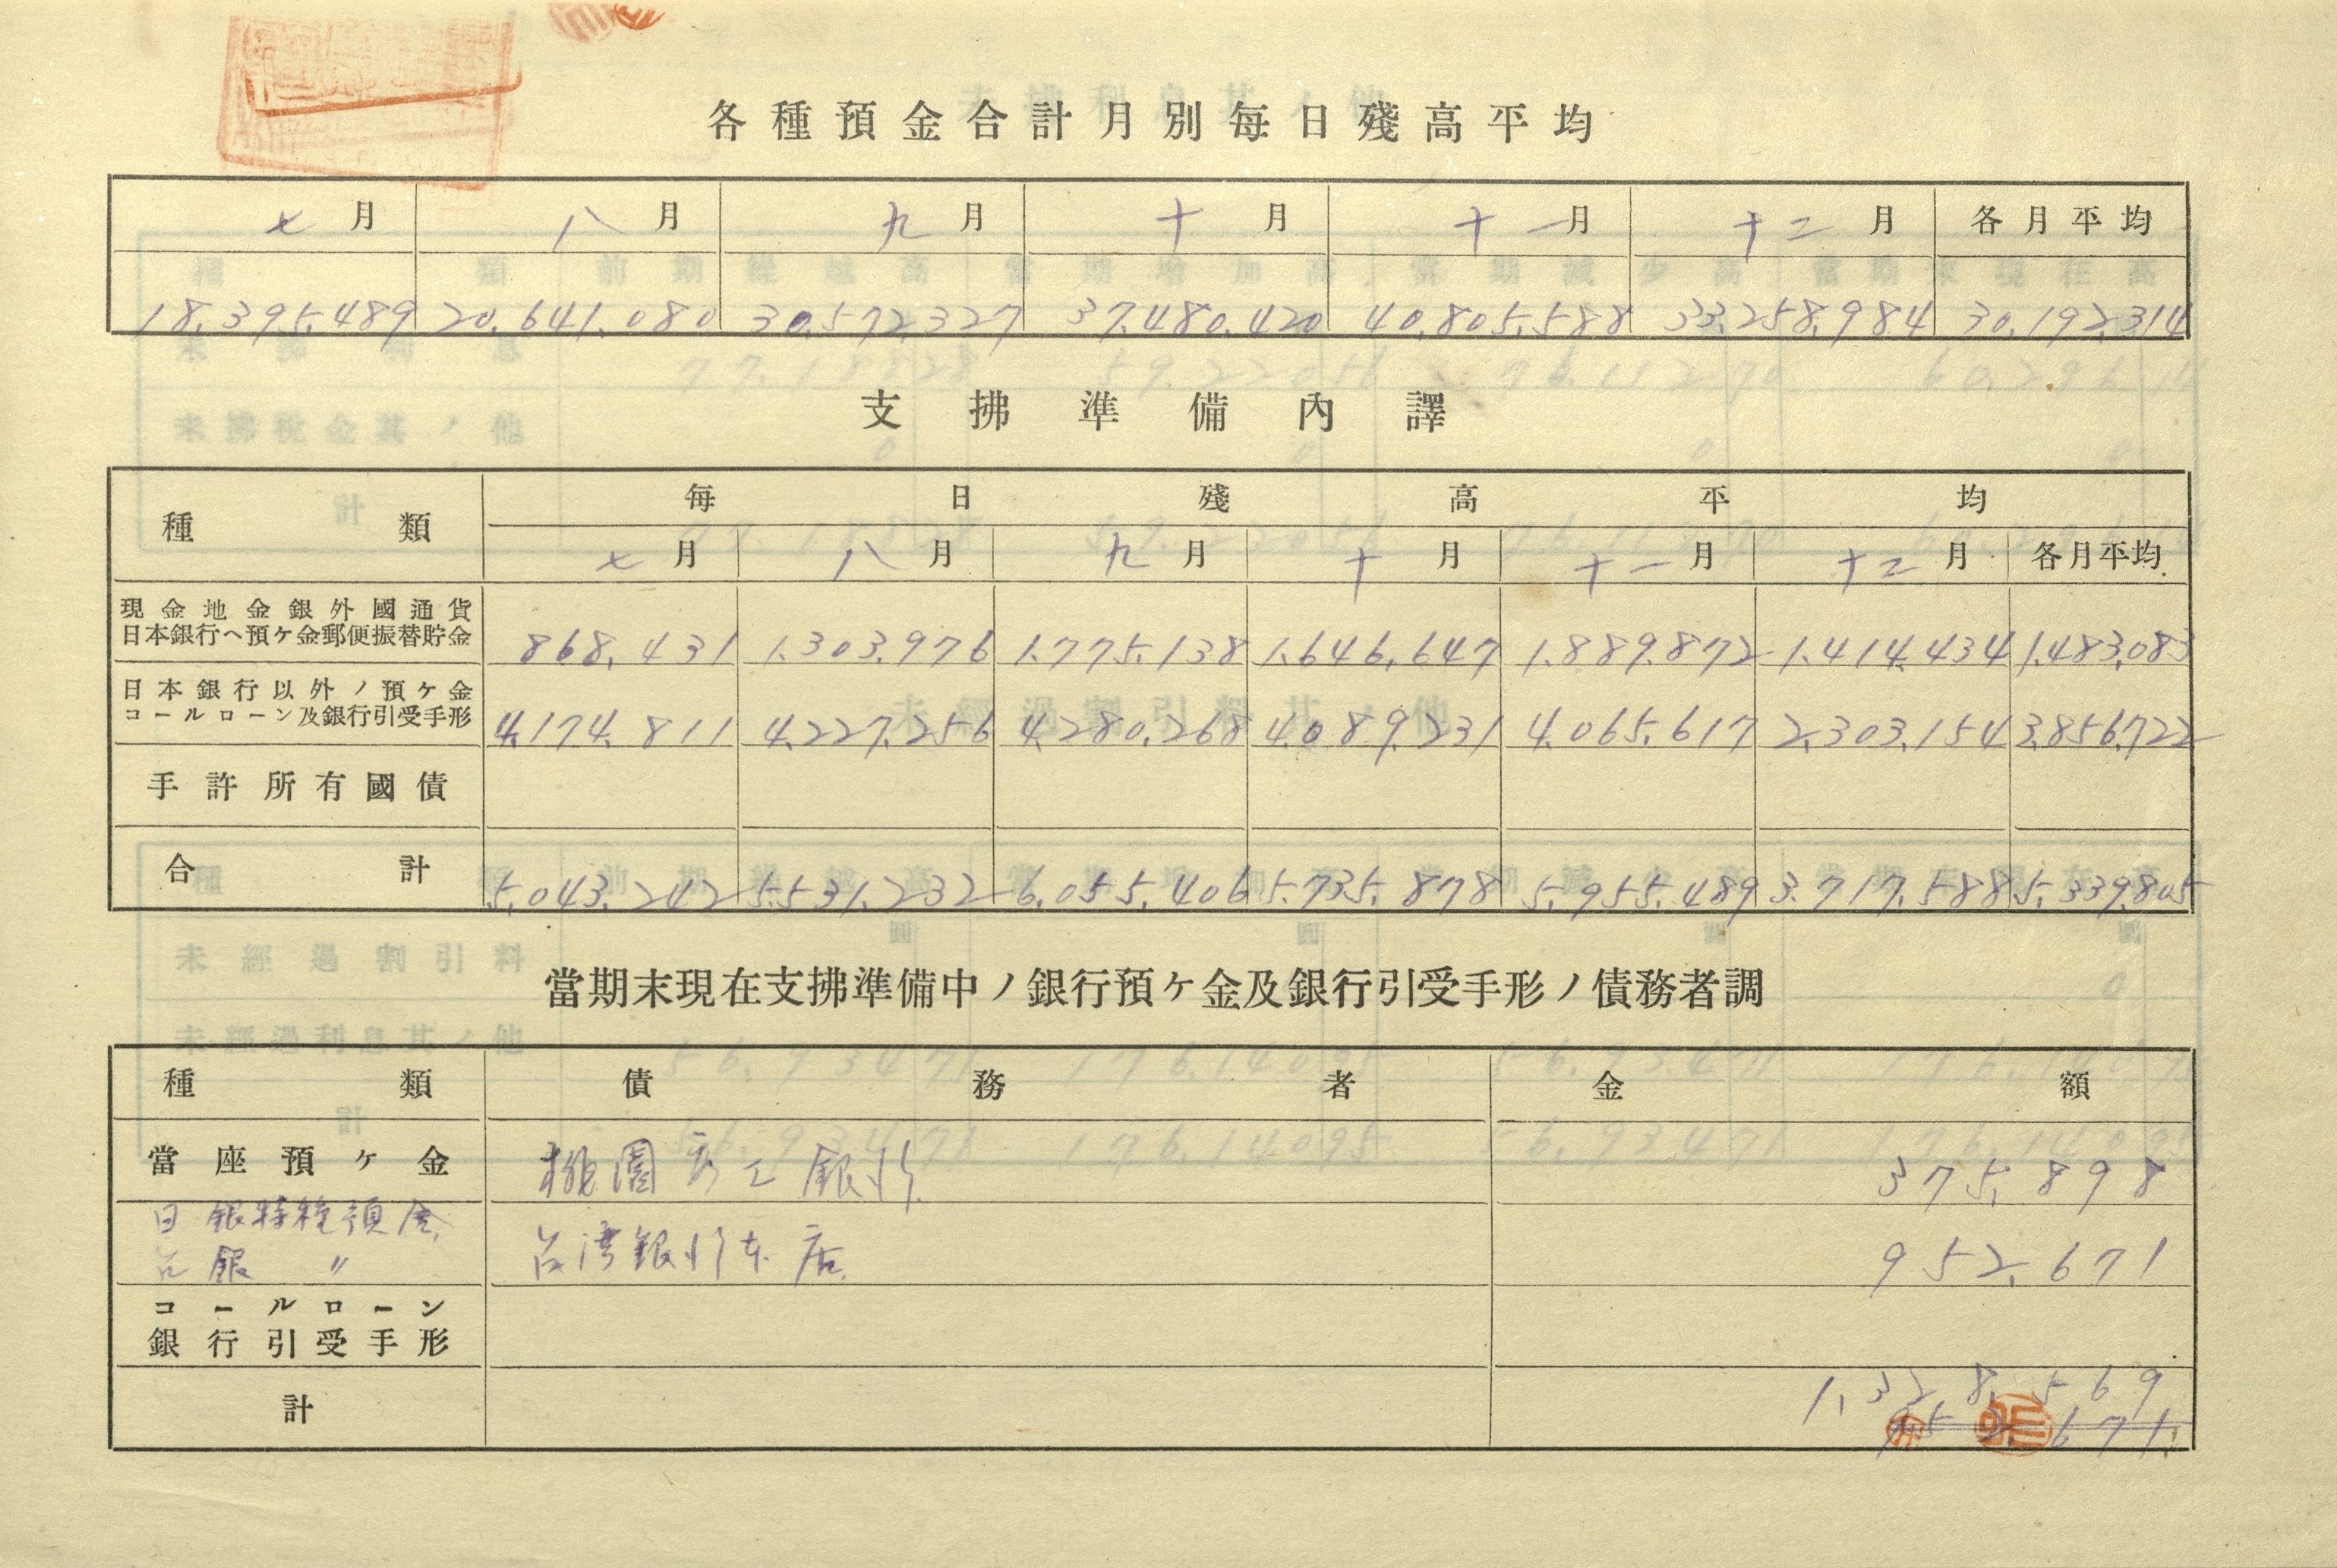 各種預金合計月別每日殘高平均
七月 八月 九月 十月 十一月 十二月 各月平均
18,395,489 20,641,080 30,572,327 37,480,420 40,805,588 33,258,984 30,192,314
支拂準備內譯
種類 每日殘高平均
七月 八月 九月 十月 十一月 十二月 各月平均
現金地金銀外國通貨
日本銀行ヘ預ケ金郵便振替貯金 868,431 1,303,976 1,775,138 1,646,647 1,889,872 1,414,434 1,483,083
日本銀行以外ノ預ケ金
コールローン及銀行引受手形 4,174,811 4,227,256 4,280,268 4,089,231 4,065,617 2,303,154 3,856,722
手許所有國債
合計 5,043,242 5,531,232 6,055,406 5,735,878 5,955,489 3,717,588 5,339,805
當期末現在支拂準備中ノ銀行預ケ金及銀行引受手形ノ債務者調
種類 債務者 金額
當座預ケ金 桃園 銀行 375,898
日銀特種預金
台銀 〃 台湾銀行本店 952,671
コールローン
銀行引受手形
計 1,328,569
952,671